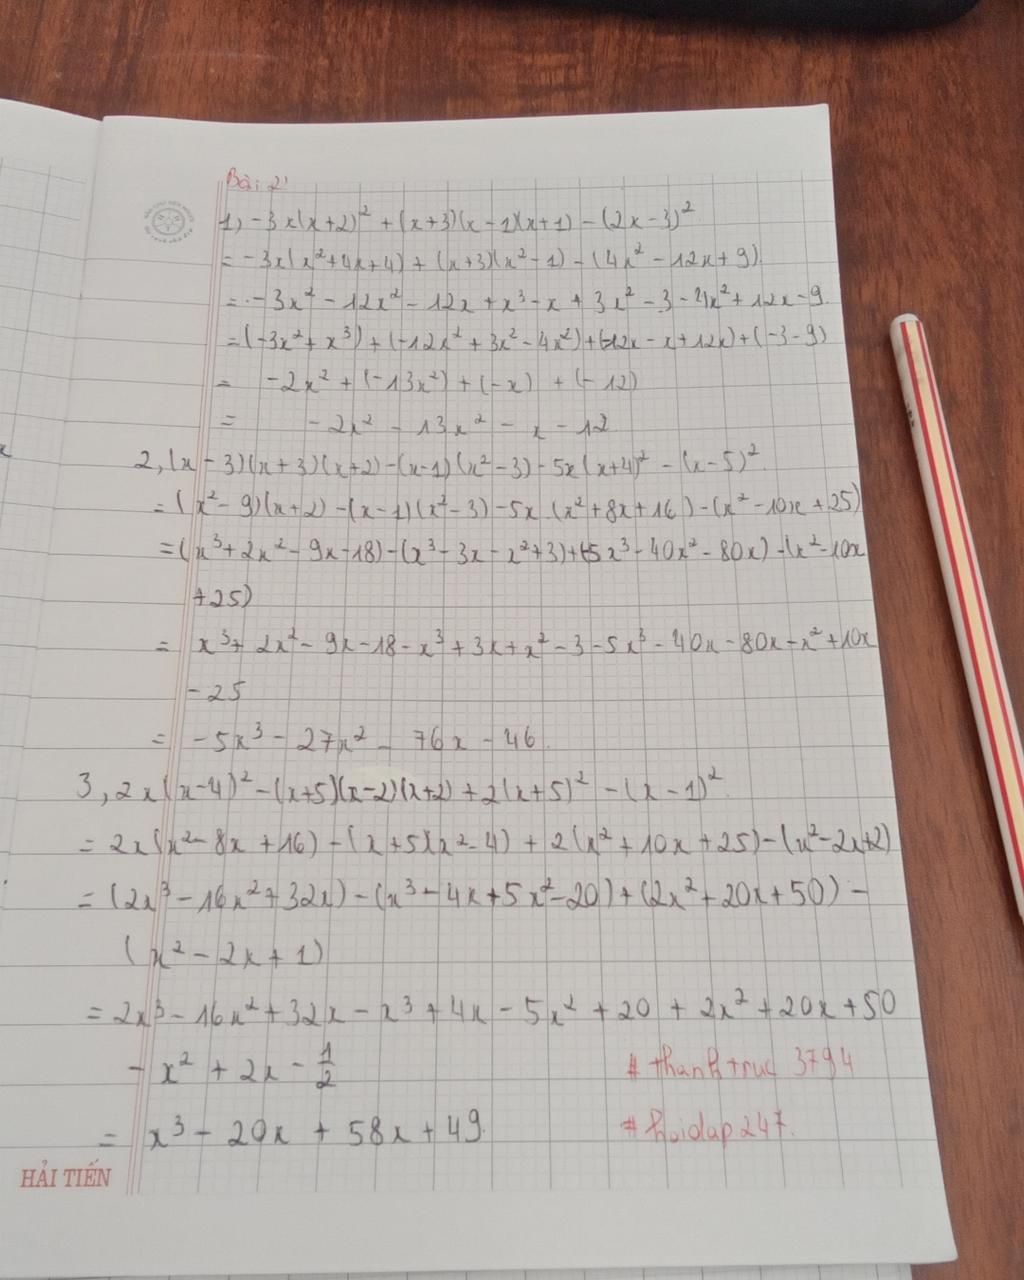 Bài 2'
1, -3x(x+2)² + (x+3)(x-1)(x+1) - (2x-3)²
= -3x(x²+4x+4) + (x+3)(x²-1) - (4x²-12x+9)
= -3x² - 12x² - 12x + x³ - x + 3x² - 3 - 4x² + 12x - 9.
= (-3x² + x³) + (-12x² + 3x² - 4x²) + (-12x - x + 12x) + (-3-9)
= -2x² + (-13x²) + (-x) + (-12)
= -2x² - 13x² - x - 12.
2, (x-3)(x+3)(x+2) - (x-1)(x²-3) - 5x(x+4)² - (x-5)².
= (x²-9)(x+2) - (x-1)(x²-3) - 5x.(x²+8x+16) - (x²-10x+25)
= (x³+2x²-9x-18) - (x³-3x-x²+3) + (-5x³-40x²-80x) - (x²-10x
+25)
= x³+2x²-9x-18-x³+3x+x²-3-5x³-40x-80x-x²+10x
-25
= -5x³ - 27x² - 76x - 46.
3, 2x(x-4)² - (x+5)(x-2)(x+2) + 2(x+5)² - (x-1)².
= 2x(x²-8x+16) - (x+5)(x²-4) + 2(x²+10x+25) - (x²-2x+2)
= (2x³-16x²+32x) - (x³-4x+5x²-20) + (2x²+20x+50) -
(x²-2x+1)
= 2x³-16x²+32x-x³+4x-5x²+20+2x²+20x+50
- x² + 2x - 1/2
= x³ - 20x + 58x + 49.
# thanhtruc 3794
# hoidap247.
HẢI TIẾN